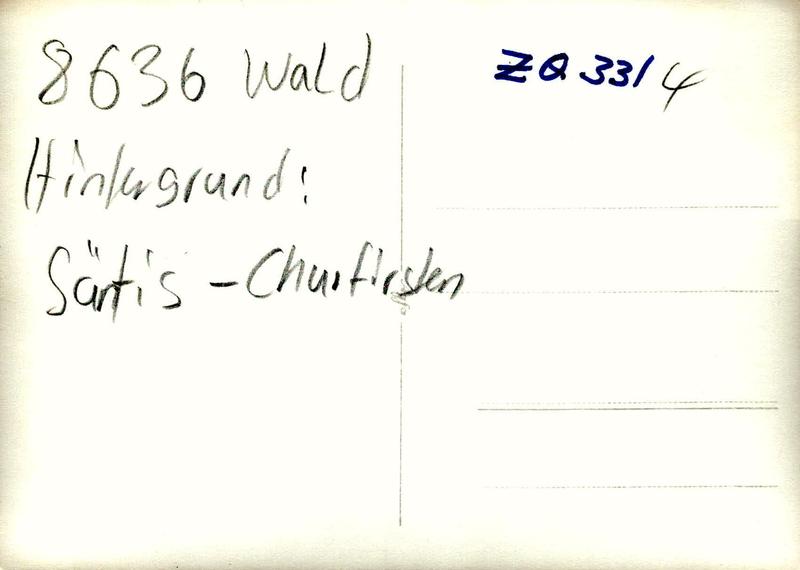 8636 Wald
Hintergrund:
Säntis - Churfirsten
ZQ 331 4